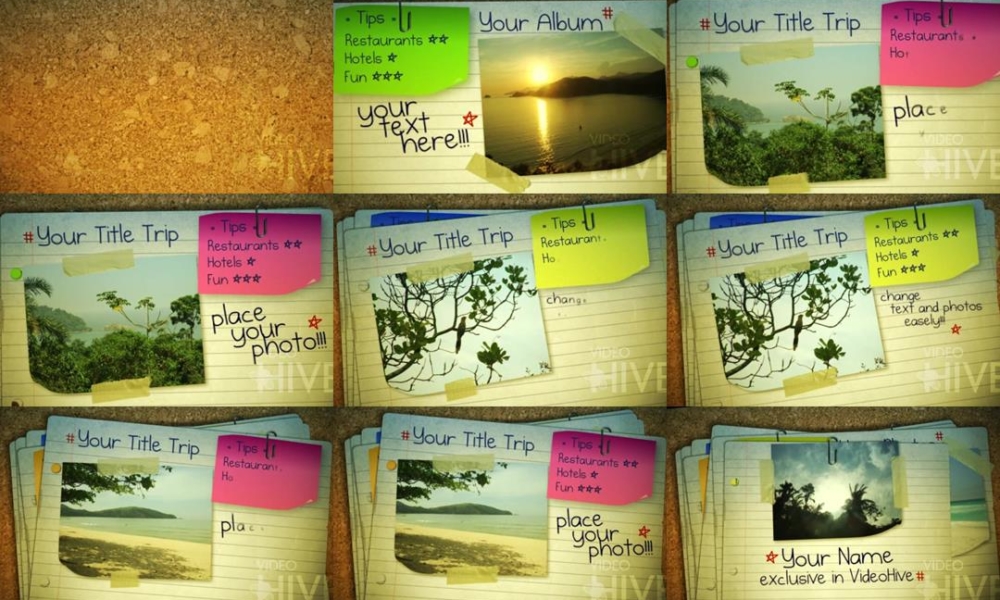 • Tips
Restaurants ☆☆
Hotels ☆
Fun ☆☆☆
Your Album#
your
text
here!!!
VIDEO
HIVE
#Your Title Trip
• Tips
Restaurants
Ho
place
VIDEO
HIVE
HIVE
#Your Title Trip
• Tips
Restaurants ☆☆
Hotels ☆
Fun ☆☆☆
place
your
photo!!!
VIDEO
HIVE
#Your Title Trip
• Tips
Restauran
Ho
chang
VIDEO
HIVE
#Your Title Trip
• Tips
Restaurants ☆☆
Hotels ☆
Fun ☆☆☆
change
text and photos
easely!!!
VIDEO
HIVE
#Your Title Trip
• Tips
Restauran
Ho
pla
VIDEO
HIVE
#Your Title Trip
• Tips
Restaurants ☆☆
Hotels ☆
Fun ☆☆☆
place
your
photo!!!
VIDEO
HIVE
☆Your Name
exclusive in VideoHive#
VIDEO
HIVE